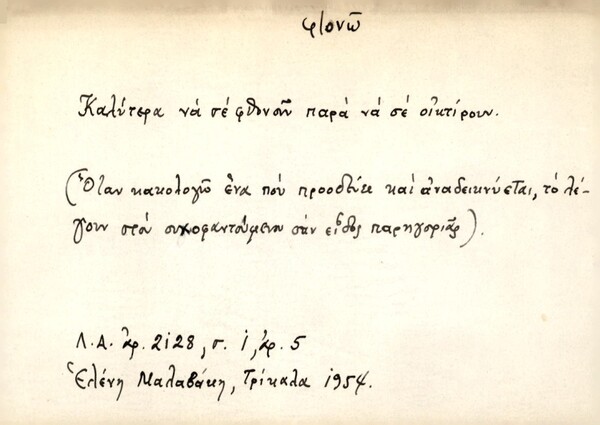 φθονῶ
Καλύτερα νά σέ φθονοῦν παρά νά σέ οἰκτίρουν.
(Ὅταν κακολογοῦν ἕνα πού προοδεύει καί ἀναδεικνύεται, τό λέ-
γουν στόν συκοφαντούμενο σάν εἶδος παρηγοριᾶς).
Λ.Α. ἀρ. 2128, σ. 1, ἀρ. 5
Ἑλένη Μαλαβάκη, Τρίκαλα 1954.